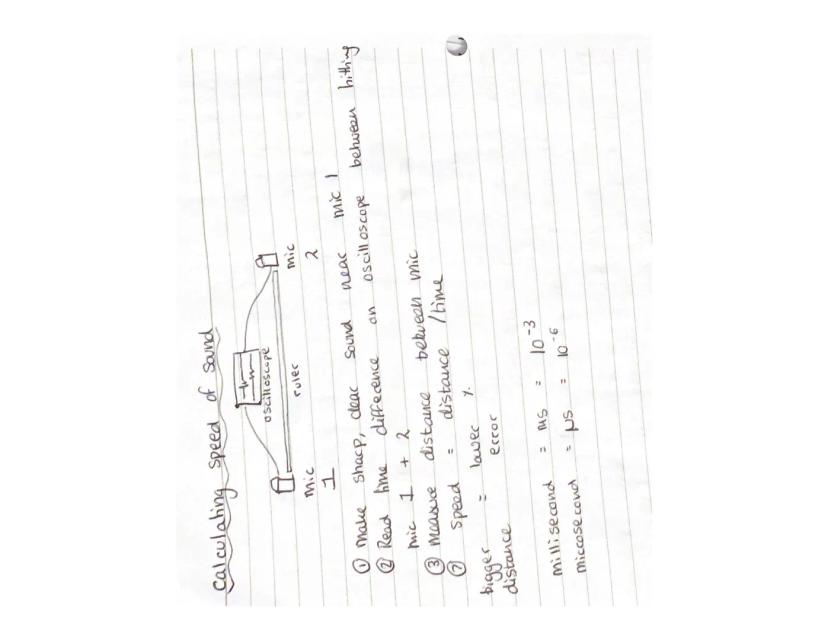 Calculating speed of sound
oscilloscope
ruler
mic
1
mic
2
① Make sharp, clear sound near mic 1
② Read time difference on oscilloscope between hitting
mic 1 + 2
③ Measure distance between mic
⑦ speed = distance /time
bigger = lower %
distance error
millisecond = ms = 10⁻³
microsecond = μs = 10⁻⁶